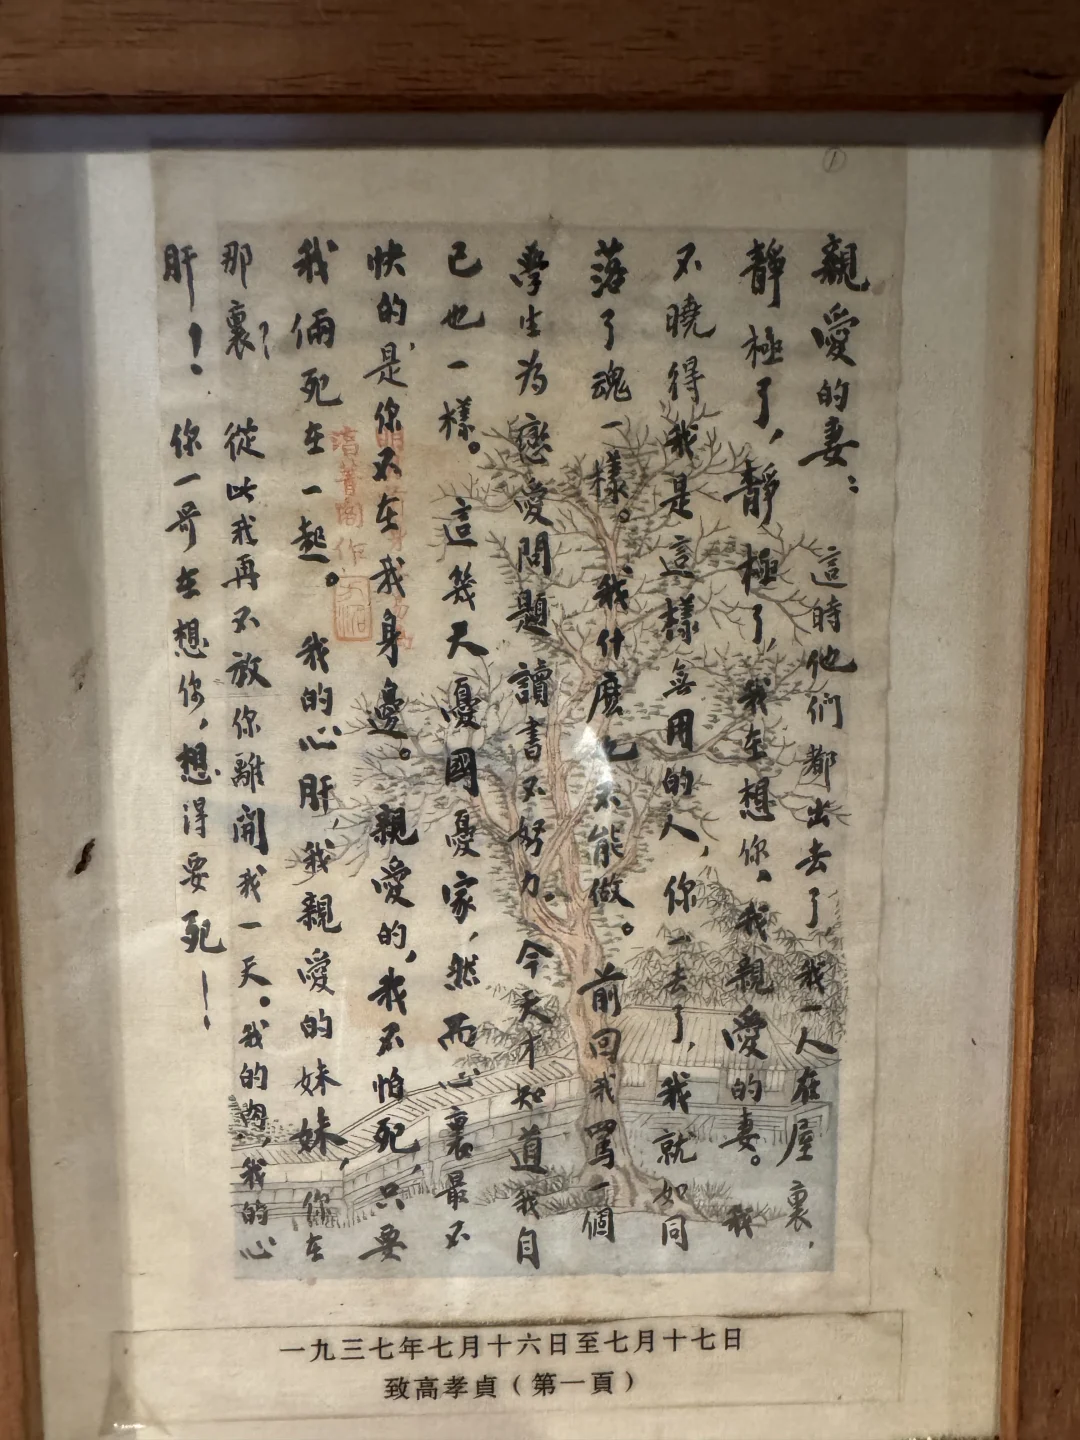 ①
親愛的妻：這時他们都出去了，我一人在屋裏，
靜極了，靜極了，我在想你，我親愛的妻。我
不曉得我是這樣無用的人，你一去了，我就如同
落了魂一樣。我什麽也不能做。前回我罵一個
學生为戀愛問題讀書不努力，今天才知道我自
己也一樣。這幾天憂國憂家，然而心裏最不
快的，是你不在我身邊。親愛的，我不怕死，只要
我倆死在一起。我的心肝，我親愛的妹妹，你在
那裏？從此我再不放你離開我一天。我的肉，我的心
肝！你一哥在想你，想得要死！
一九三七年七月十六日至七月十七日
致高孝貞（第一頁）